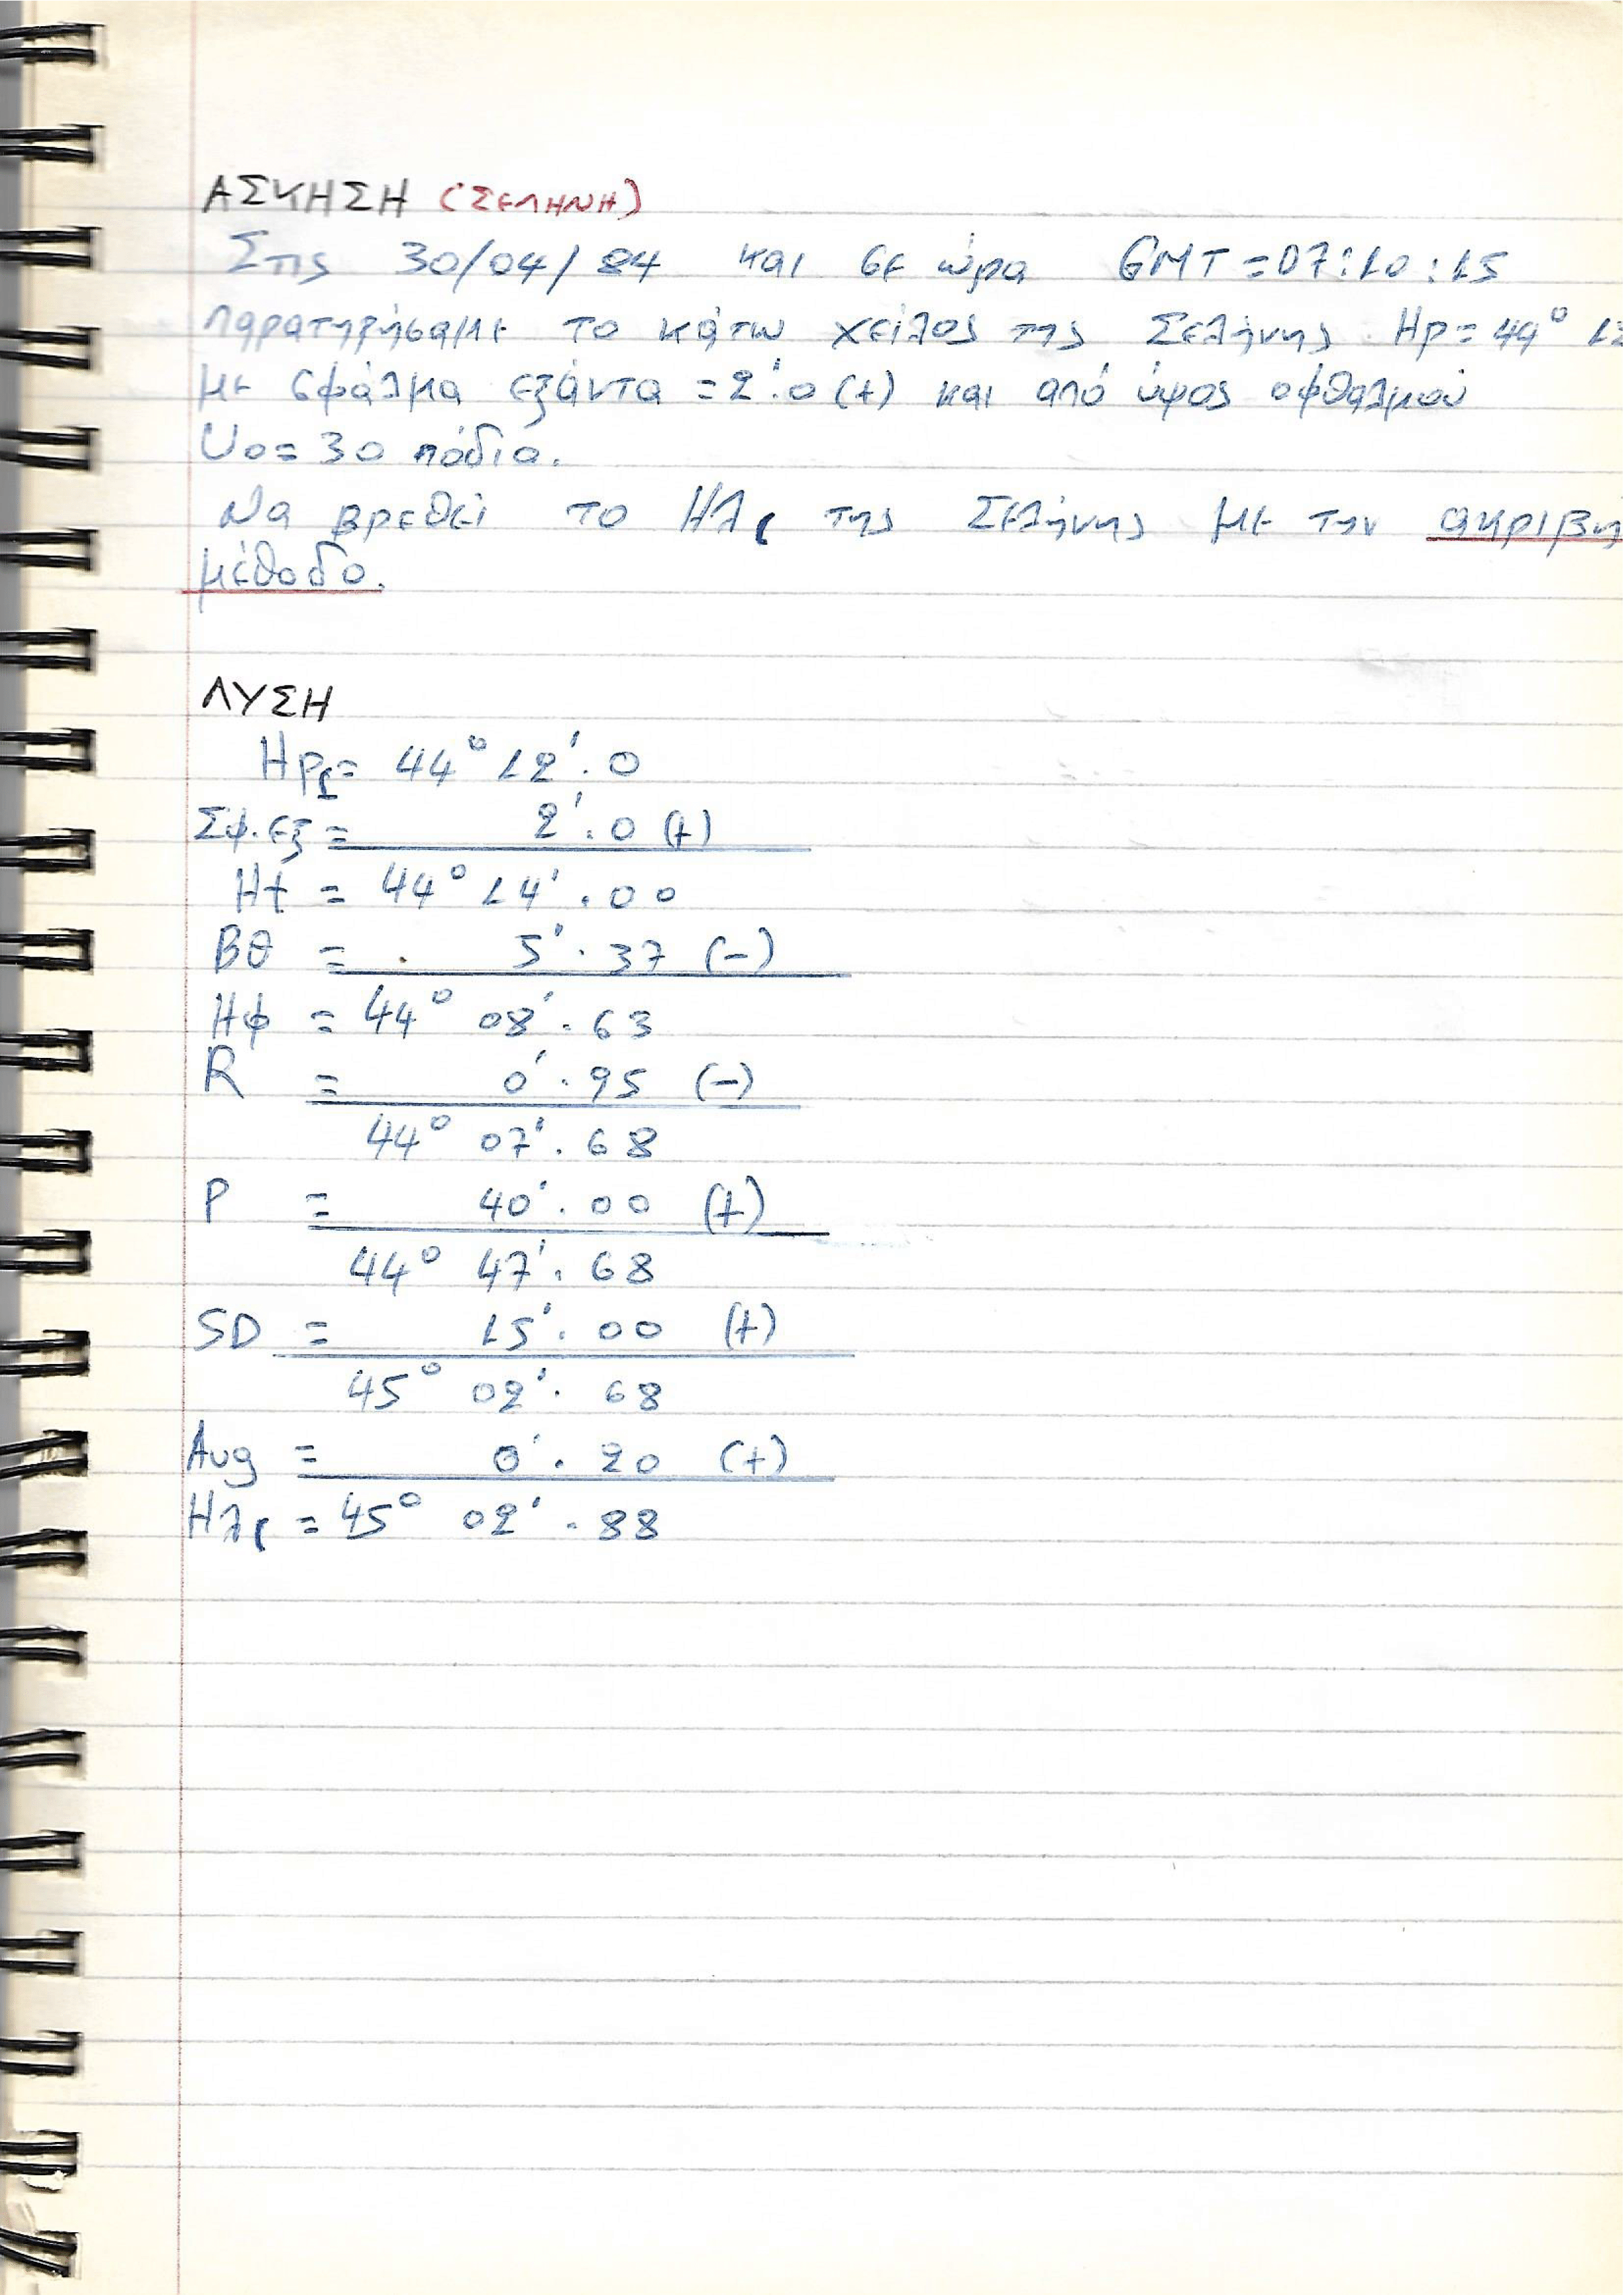 ΑΣΚΗΣΗ (ΣΕΛΗΝΗ)
Στις 30/04/84 και σε ώρα GMT = 07:10:15
παρατηρήσαμε το κάτω χείλος της Σελήνης Ηρ = 44° 12
με σφάλμα εξάντα = 2'.0 (+) και από ύψος οφθαλμού
Υο = 30 πόδια.
Να βρεθεί το Ηλ☾ της Σελήνης με την ακριβή
μέθοδο.
ΛΥΣΗ
Ηρ☾ = 44° 12'.0
Σφ.εξ = 2'.0 (+)
Ηt = 44° 14'.00
Βθ = 5'.37 (-)
Ηφ = 44° 08'.63
R = 0'.95 (-)
44° 07'.68
P = 40'.00 (+)
44° 47'.68
SD = 15'.00 (+)
45° 02'.68
Aug = 0'.20 (+)
Ηλ☾ = 45° 02'.88